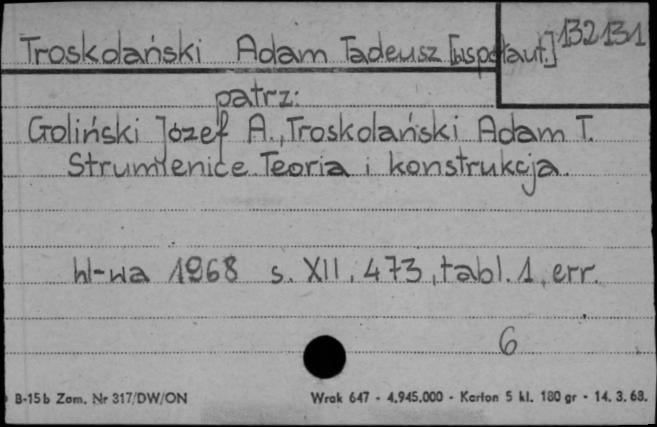 Troskolański Adam Tadeusz [współaut.] 132131
patrz:
Goliński Józef A., Troskolański Adam T.
Strumienice Teoria i konstrukcja.
W-wa 1968 s. XII, 473, tabl. 1, err.
6
B-15b Zam. Nr 317/DW/ON Wrak 647 - 4.945.000 - Karton 5 kl. 180 gr - 14. 3. 68.